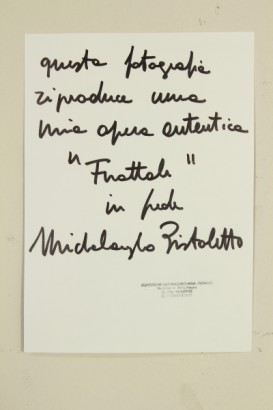 questa fotografia
riproduce una
mia opera autentica
"Frattale"
in fede
Michelangelo Pistoletto